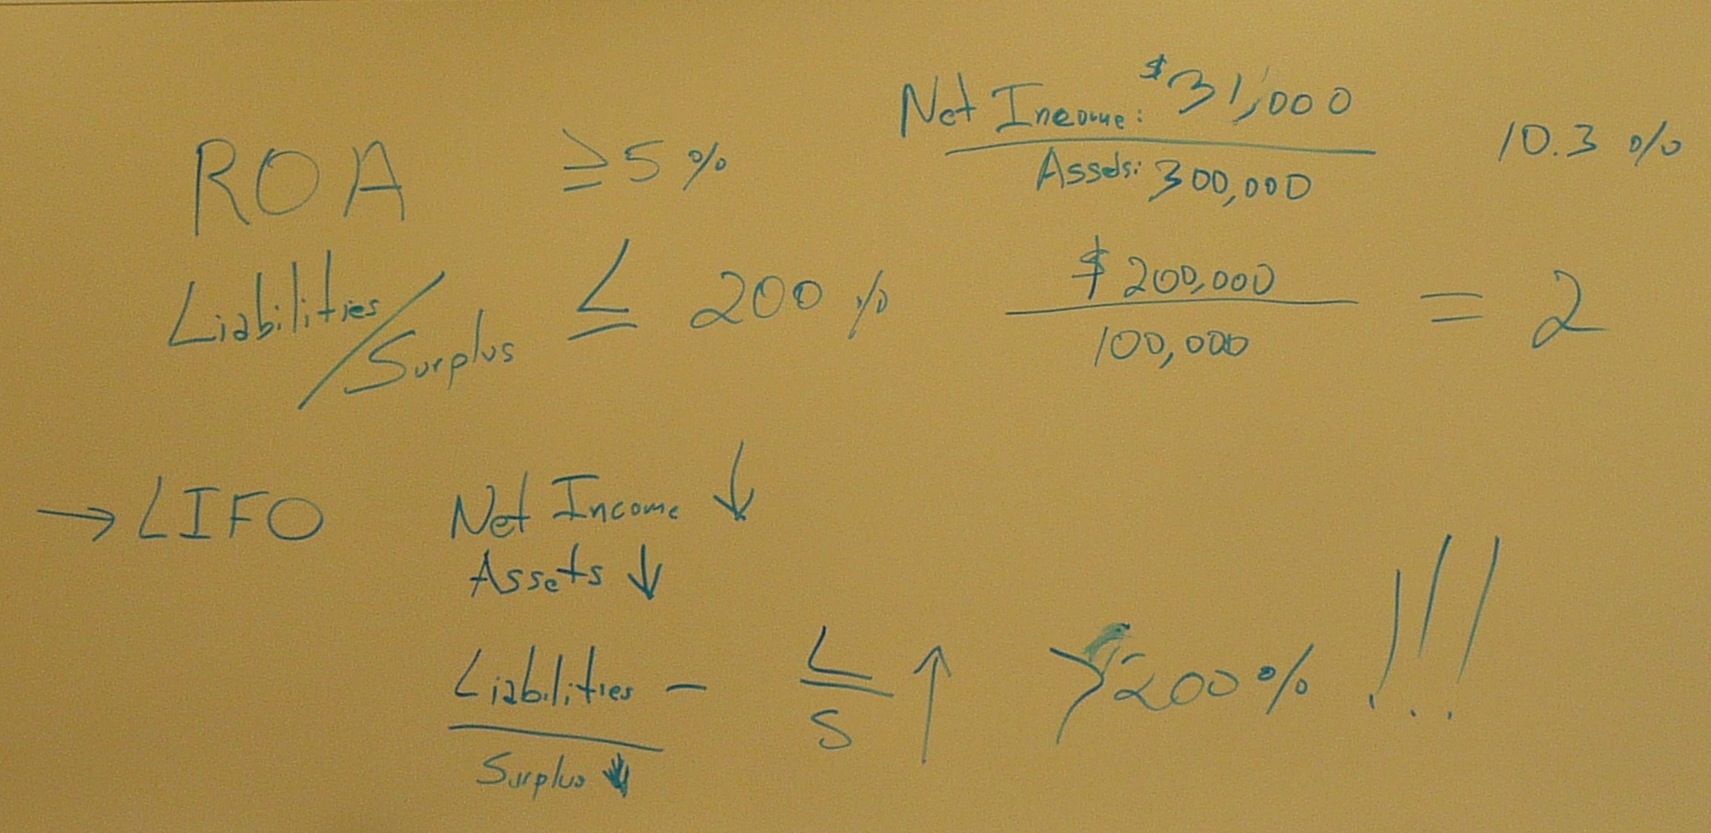 ROA ≥ 5% Net Income: $31,000 10.3%
Assets: 300,000
Liabilities/Surplus ≤ 200% $200,000 = 2
100,000
→ LIFO Net Income ↓
Assets ↓
Liabilities – L ↑ >200% !!!
Surplus ↓ S